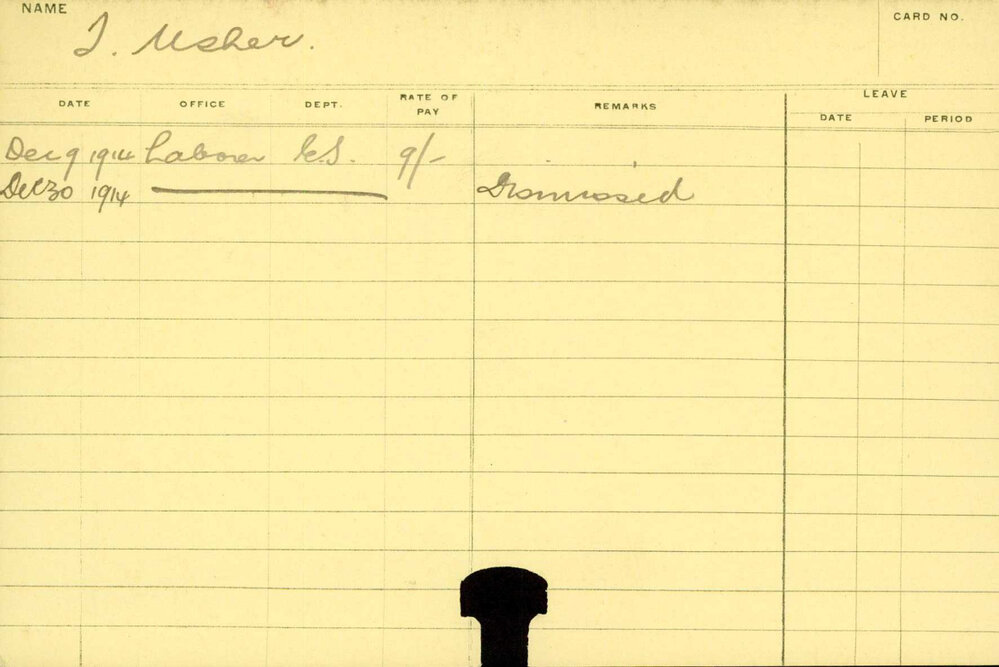 NAME
CARD NO.
Usher.
DATE OFFICE DEPT. RATE OF PAY REMARKS LEAVE
DATE PERIOD
Dec 9 1914 Laborer 9/-
Dec 30 1914 Dismissed